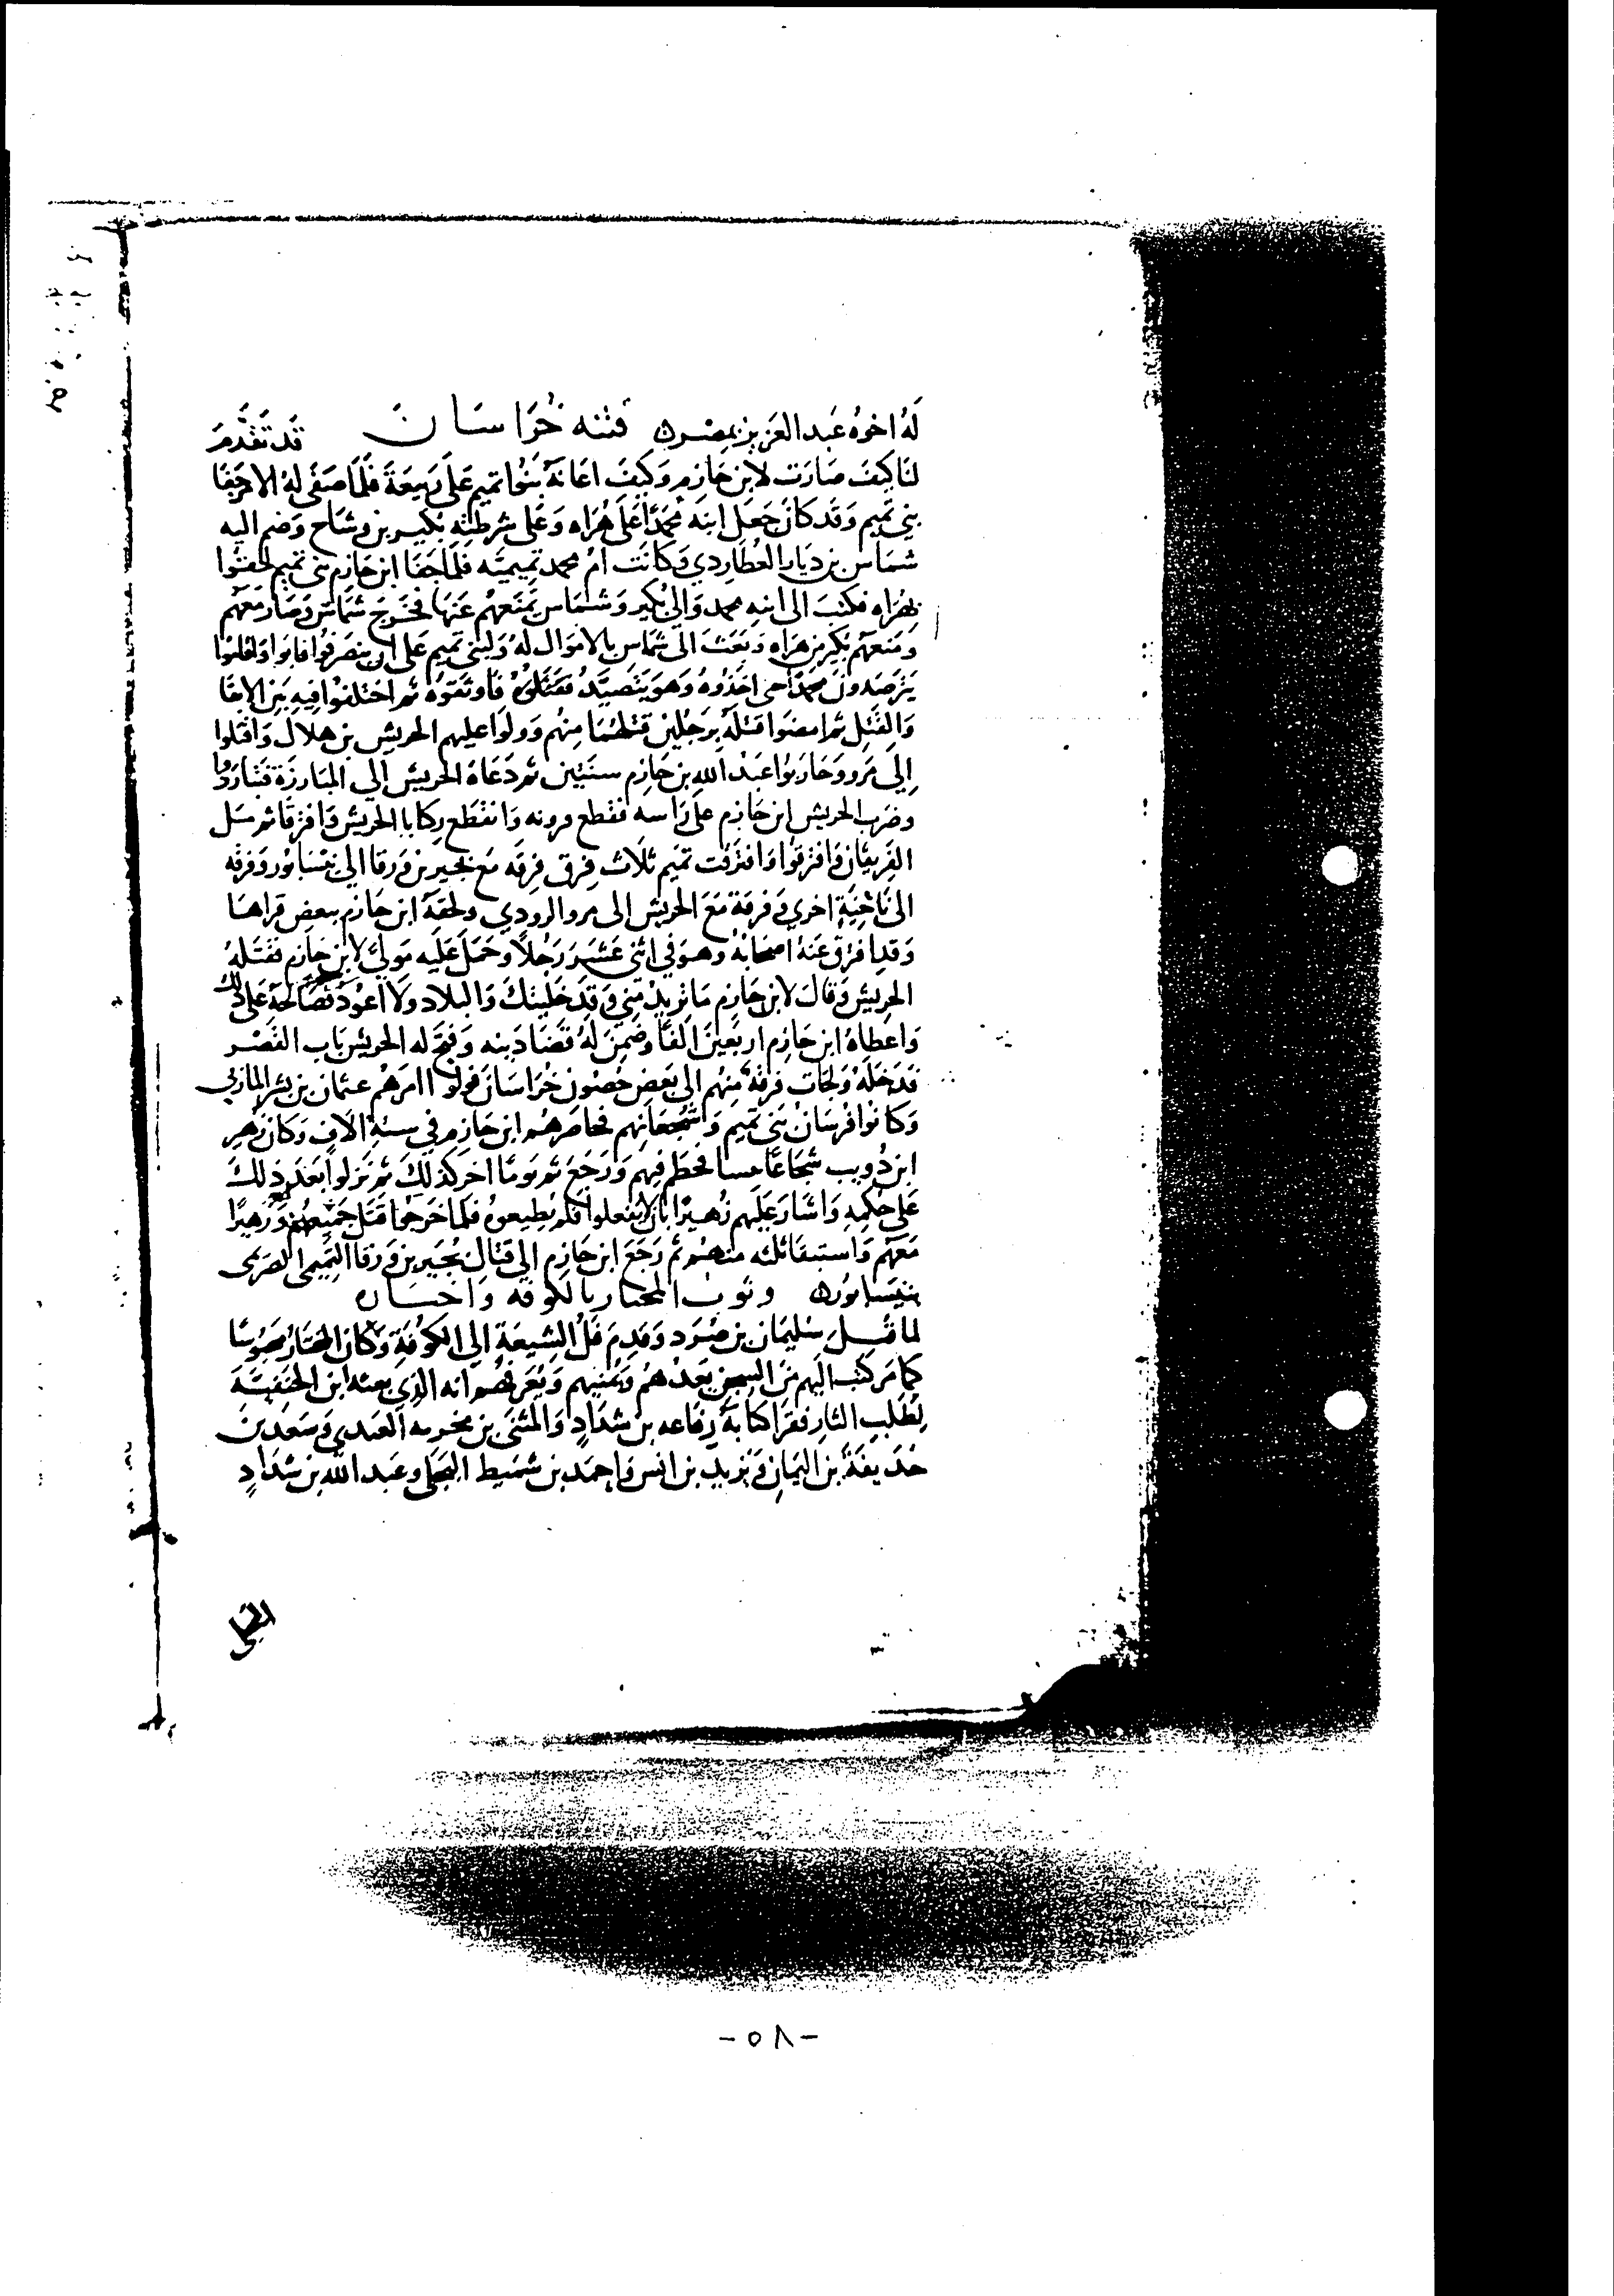 لَهُ اخوهُ عَبد العَزيز بمِصْرَ فتنه خُرَاسَانَ قَد تَقَدَّمَ
لنَا كَيفَ صَارَت لابن خَازِم وَكيفَ اعَانَهُ بَنُوا تميم عَلَى رَبيعَةَ فَلَمَّا صَفَى لهُ الامر جَفَا
بني تَمِيم وَقد كانَ جَعَل ابنَهُ محَمّدًا عَلَى هَرَاه وَعَلى شرطتِهِ بُكير بن وشَاح وَضم اليه
شمَاسَ بن دثار العُطَارِدي وَكانَت امُّ محمد تميميَّه فَلَمَّا جَفَا ابن خَازم بني تميم لحقُوا
بهَرَاه فكتبَ الى ابنهِ محمد وَالى بُكير وَشمَاس بمَنعهُم عَنهَا فخَرَجَ شمَاسٌ وَصَارَ مَعَهُم
وَمَنعَهُم بُكير من هَراه وَبَعَثَ الى شمَاس بالاموَال لهُ وَلبَني تميم عَلَى ان ينصَرفُوا فابوَا وَاقامُوا
يَترَصدونَ محمّدًا حتى اخَذُوهُ وَهوَ يَتَصيَّدُ فَاوثقوهُ ثم اختلفُوا فيهِ بَين الابقَا
وَالقَتل ثم امضَوا قتلَهُ برَجُلين قتلَهُمَا مِنهُم وَوَلوا عليهم الحريش بن هلال وَاقبَلوا
اِلى مَرو وَحَارَبُوا عَبْدَ اللهِ بن خَازم سنَتَين ثم دَعَاهُ الحريش اِلى المبَارزَة فَتَبَارَزُوا
وضرَب الحريش ابن خَازم عَلى رَاسه فقطع فروته وَانقَطع ركابا الحريش وَافترقَا ثم مَل
الفَريقَان وَافترقُوا وَافتَرَقت تميم ثلَاث فِرق فِرقه مَعَ بُجير بن وَرقا الى نيسَابُور وَفرقه
الى نَاحيَةٍ اخري وَفرقة مَعَ الحريش الى مرو الرودي وَلحقهُ ابن خَازم ببعض قراهَا
وَقد افترَق عَنهُ اصحَابهُ وَهوَ في اثني عَشَرَ رَجُلاً وَحمَلَ عَلَيه مَولىً لابن خَازم فقَتَلهُ
الحريش وَقالَ لابن خَازم مَا تريدُ مِني وَقد خَليتكَ وَالبلاد وَلا اعُودُ فصَالحهُ عَلَى ذلك
وَاعطاهُ ابن خَازم اربَعينَ الفًا وَضمِنَ لهُ قَضَا دَينه وَفتحَ له الحريش بَاب القَصْر
فَدَخَلهُ وَلجَات فرقةٌ مِنهُم الى بَعض حُصُون خُراسَانَ فوَلوا امرَهُم عثمان بن بشر المازني
وَكانُوا فرسَان بَني تميم وَشجعَانهم فحاصَرهُم ابن خَازم في ستةِ آلَافٍ وَكانَ زُهير
ابن ذُويب شُجَاعًا فحطم فيهم وَرَجَعَ ثم يَومًا اخر كذلِكَ ثم نَزلوا بَعدَ ذلكَ
عَلى حُكمِهِ وَاشَارَ عَلَيهم زُهيرًا بان لا يَفعَلوا فَلم يُطيعوهُ فلما خَرجُوا قَتَلَ جَميعَهُم وَزُهيرًا
مَعَهُم وَاستبقَا ثلثه منهُم ثم رَجَعَ ابن خَازِم الى قتال بُجَير بن وَرقا التميمي الصَريمى
بنيسَابُور وثوب المختار بالكوفه وَاخباره
لما قُتِلَ سُليمَان بن صُرَد وَقَدِمَ فَلُّ الشِيعَةِ الى الكُوفَةِ وَكانَ المختَارُ مَحبُوسًا
كمَا مَر كتبَ اليهم مِنَ السجن يَعدُهُم وَيمنيهم وَيُعَرفهُم انه الذي بعثه ابن الحَنَفيَّة
لِطَلبِ الثار فَقَرَا كتابَهُ رِفَاعَه بن شدَادٍ وَالمثنى بن مخربه العَبدي وَسَعد بن
حُذَيفَةَ بن اليَمَانِ وَيَزيد بن انس وَاحمَد بن شميط البجَلى وعَبد الله بن شدَادٍ
البجلى
-٥٨-